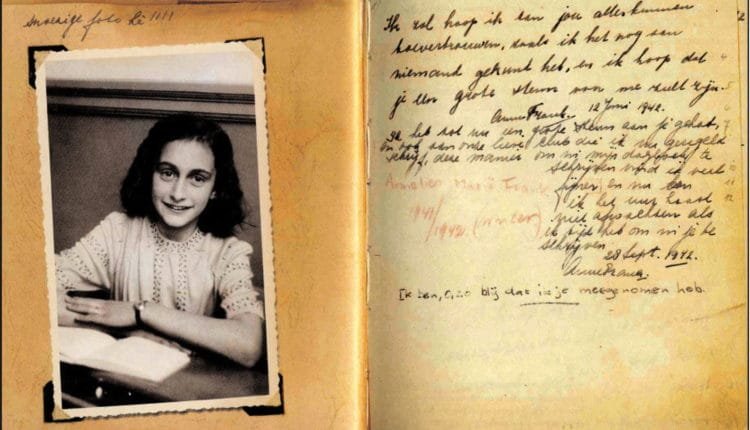 snoezige foto hè !!!!
Ik zal hoop ik aan jou alles kunnen
toevertrouwen, zoals ik het nog aan
niemand gekund heb, en ik hoop dat
je een grote steun voor me zult zijn.
Anne Frank. 12 Juni 1942.
Ik heb tot nu een grote steun aan je gehad,
en ook aan onze lieve club die ik nu geregeld
schrijf, deze manier om in mijn dagboek te
schrijven vind ik veel
fijner en nu kan
ik het uur haast
niet afwachten als
ik tijd heb om in je te
schrijven
28 Sept. 1942.
Anne Frank.
Annelies Marie Frank
1941/
1942.
Ik ben, o, zo blij dat ik je meegenomen heb.